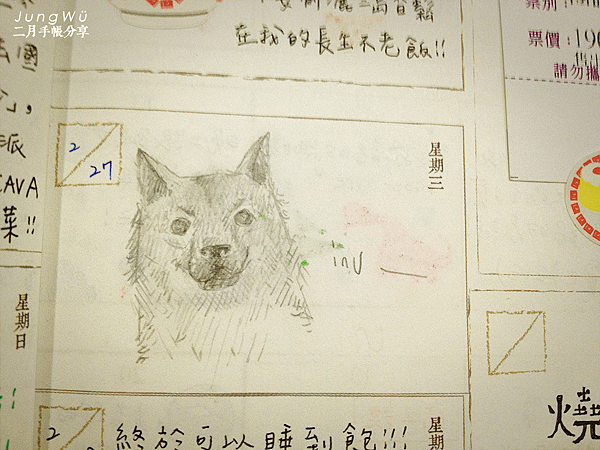 JungWü
二月手帳分享
在我的長生不老飯!!
票別:
票價:190
請勿攜
國
派
CAVA
菜!!
2
27
星期三
inu
星期日
2
終於可以睡到飽!!!
星期
燒